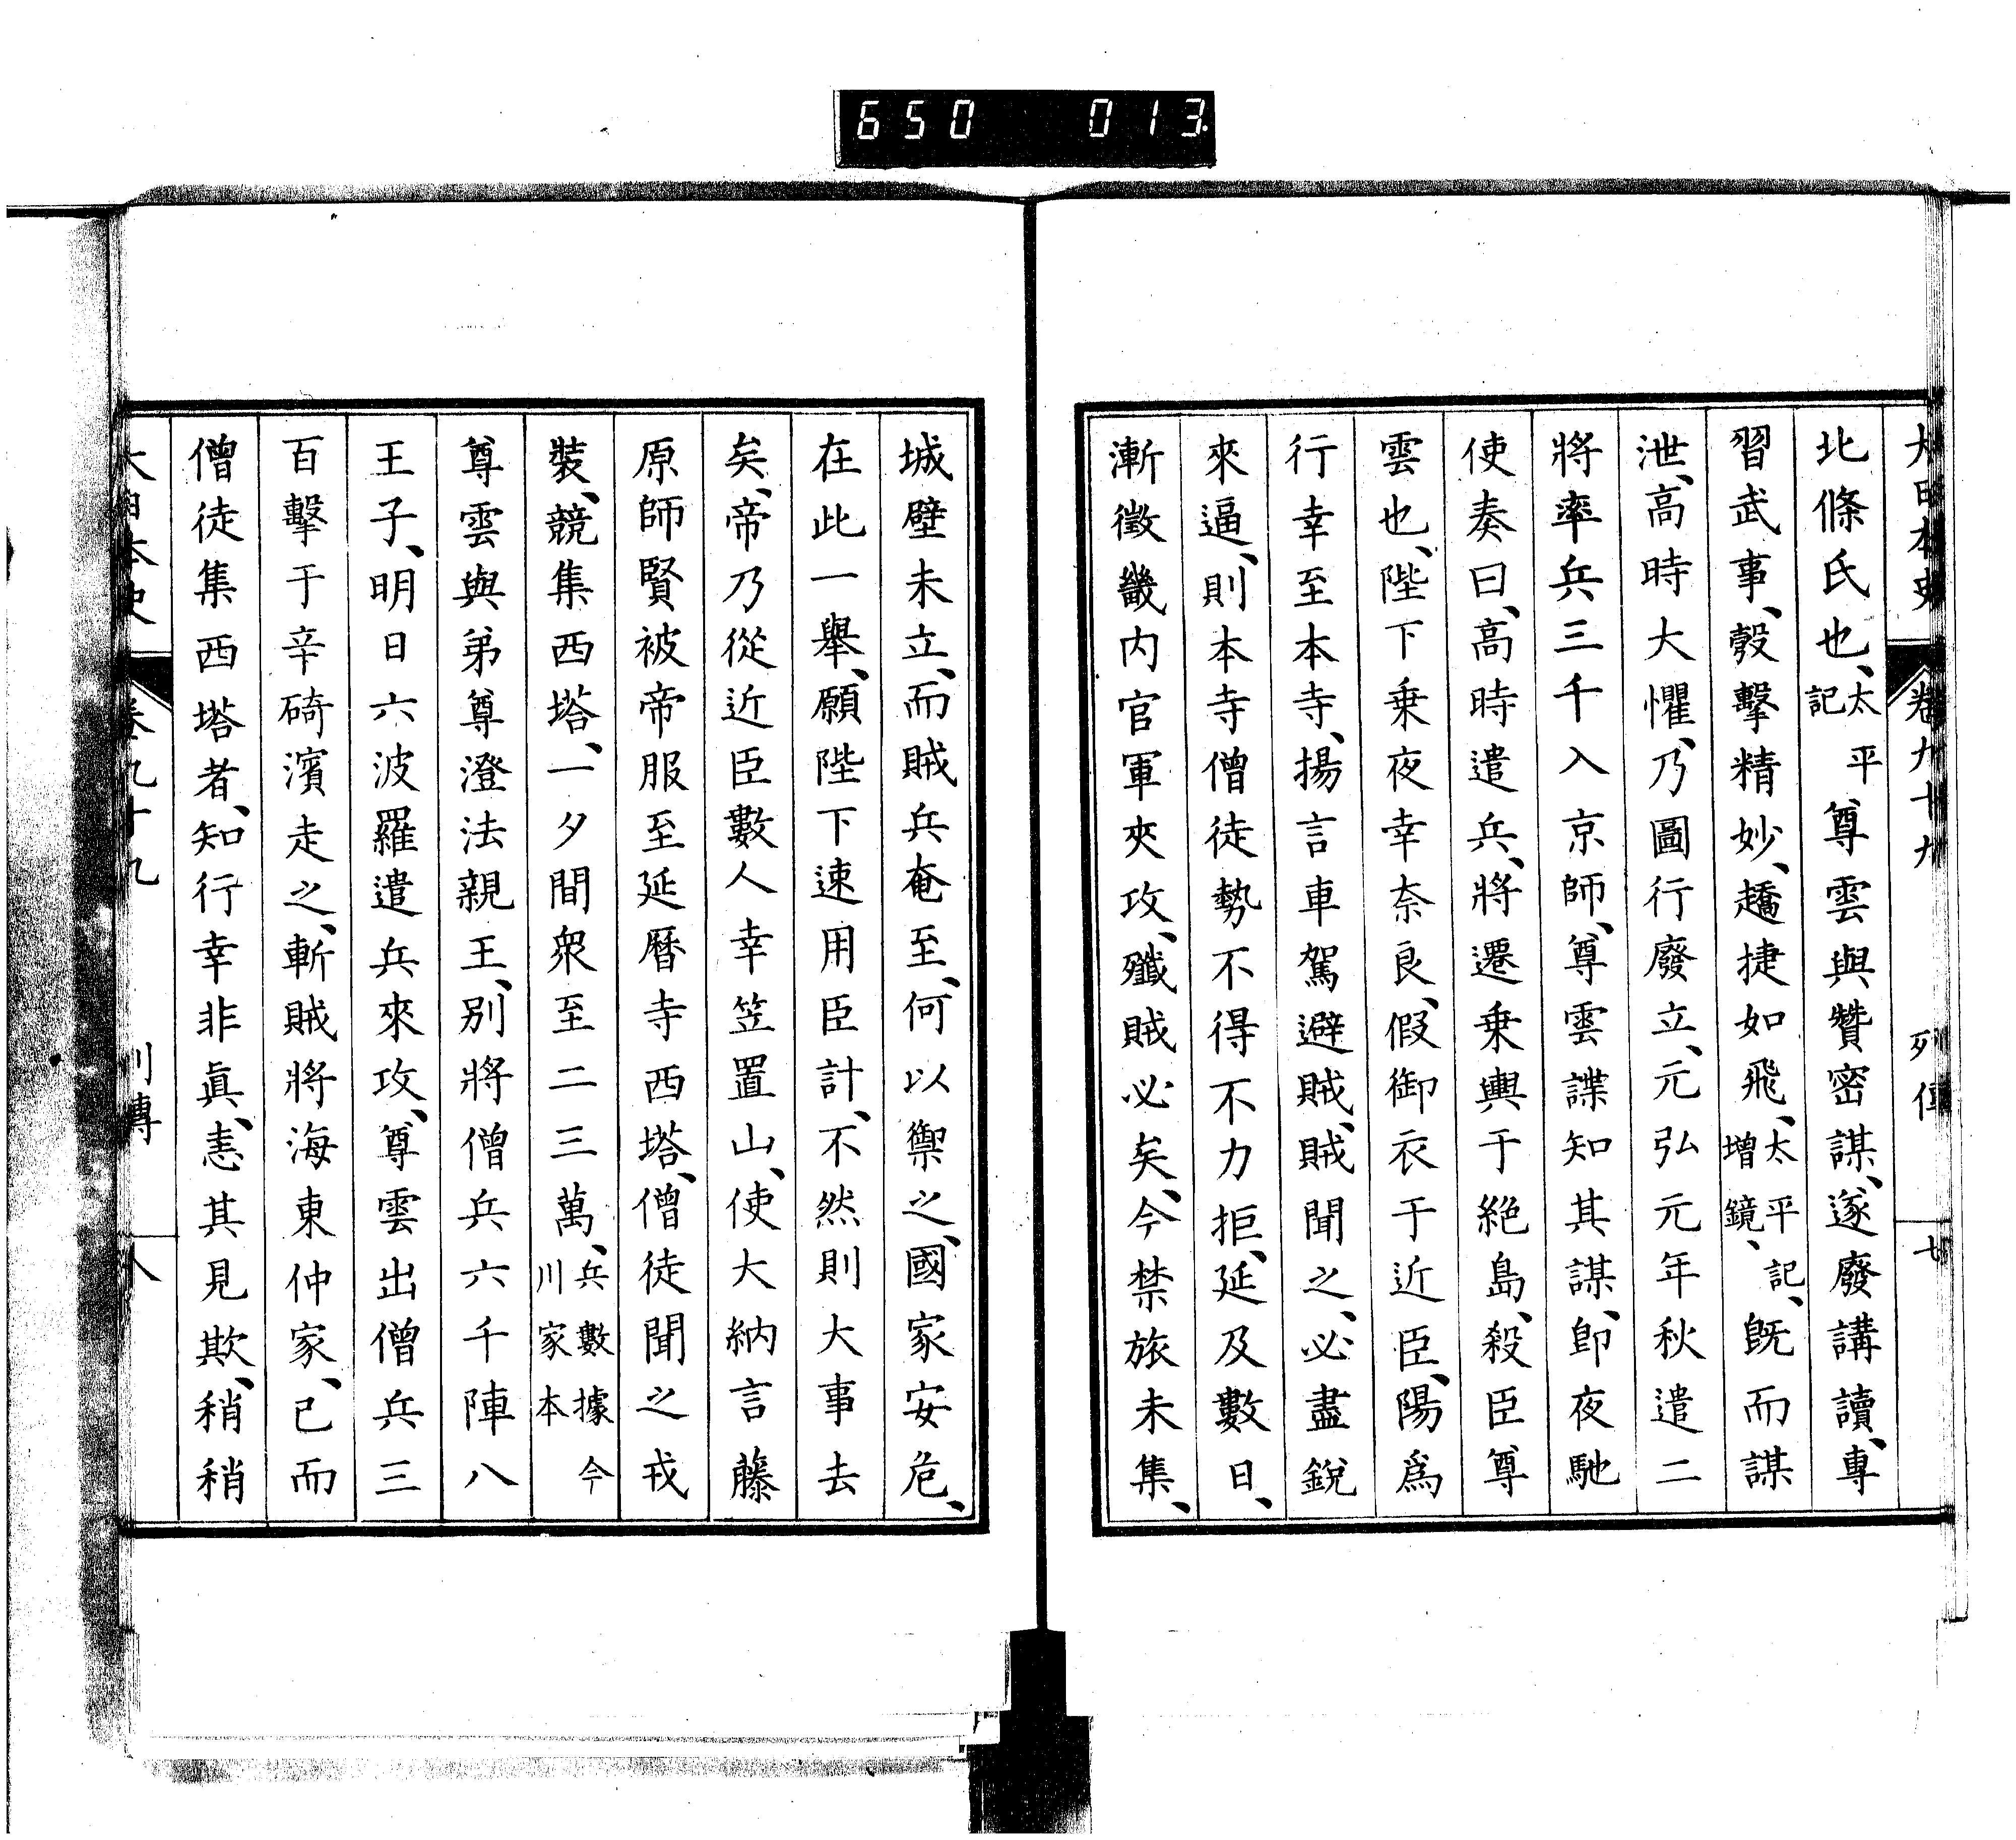 650 013
大日本史 卷九十九 列傳 七
北條氏也、太平記尊雲與贊密謀、遂廢講讀、專
習武事、彀擊精妙、趫捷如飛、太平記、增鏡、既而謀
泄、高時大懼、乃圖行廢立、元弘元年秋遣二
將率兵三千入京師、尊雲諜知其謀、卽夜馳
使奏曰、高時遣兵、將遷乘輿于絕島、殺臣尊
雲也、陛下乘夜幸奈良、假御衣于近臣、陽爲
行幸至本寺、揚言車駕避賊、賊聞之、必盡銳
來逼、則本寺僧徒勢不得不力拒、延及數日、
漸徵畿内官軍夾攻、殲賊必矣、今禁旅未集、
城壁未立、而賊兵奄至、何以禦之、國家安危、
在此一舉、願陛下速用臣計、不然則大事去
矣、帝乃從近臣數人幸笠置山、使大納言藤
原師賢被帝服至延曆寺西塔、僧徒聞之戎
裝、競集西塔、一夕間衆至二三萬、兵數據今川家本
尊雲與弟尊澄法親王、別將僧兵六千陣八
王子、明日六波羅遣兵來攻、尊雲出僧兵三
百擊于辛碕濱走之、斬賊將海東仲家、已而
僧徒集西塔者、知行幸非眞、恚其見欺、稍稍
大日本史 卷九十九 列傳 八